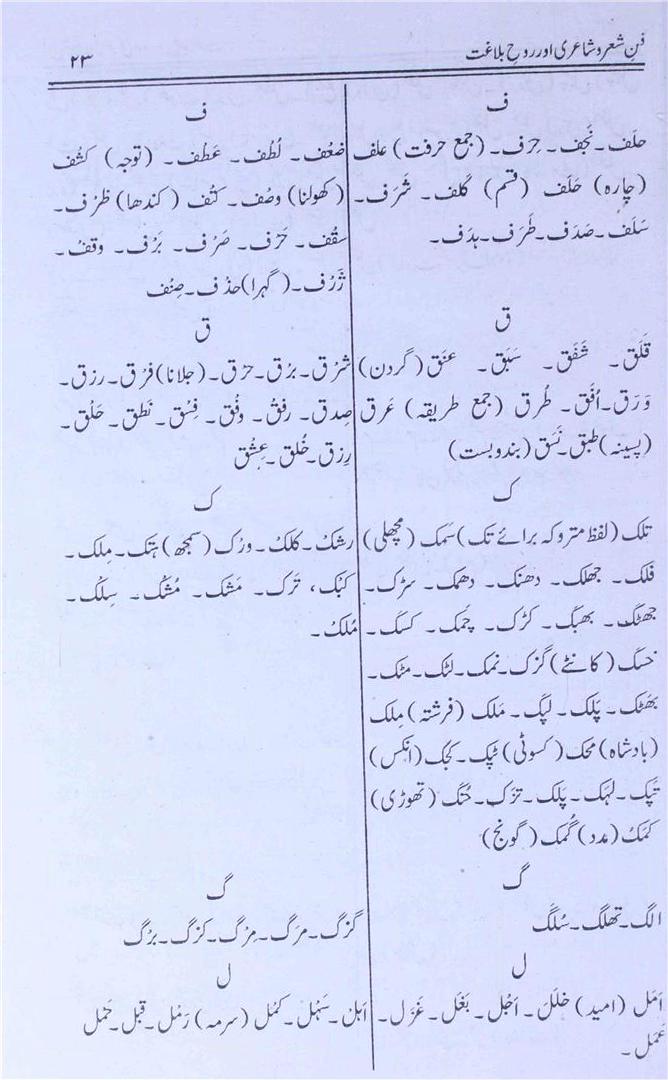 فنِ شعر و شاعری اور روحِ بلاغت
۲۳
ف
حلَف۔ نجَف۔ حِرَف۔ (جمع حرفت) علَف
(چارہ) حَلَف (قسم) کَلَف۔ شَرَف۔
سَلَف۔ صَدَف۔ طَرَف۔ ہدَف۔
ق
قَلَق۔ شَفَق۔ سَبَق۔ عنَق (گردن)
وَرَق۔ اُفَق۔ طُرق (جمع طریقہ) عَرق
(پسینہ) طبق۔ نَسَق (بندوبست)
ک
تلک (لفظ متروکہ برائے تک) سَمَک (مچھلی)
فَلَک۔ جھلَک۔ دھنَک۔ دھمَک۔ سڑک۔
جھٹَک۔ بھبَک۔ کڑک۔ چمَک۔ کسَک۔
خسَک (کانٹے) گزَک۔ نمَک۔ لٹَک۔ مٹَک۔
بھَٹَک۔ پَلَک۔ لپَک۔ مَلَک (فرشتہ) مِلک
(بادشاہ) محَک (کسوٹی) ٹپَک۔ کجَک (انکس)
تَپَک۔ لہَک۔ پلَک۔ تزَک۔ خُنَک (تھوڑی)
کمَک (مدد) گُمَک (گونج)
گ
الگ۔ تھلَگ۔ سُلَگ
ل
اَمَل (امید) خلَل۔ اجَل۔ بَغَل۔ غَزَل۔
عَمَل۔
ف
ضعُف۔ لُطْف۔ عَطْف۔ (توجہ) کشْف
(کھولنا) وصْف۔ کتْف (کندھا) ظرْف۔
سقْف۔ حَرْف۔ صَرْف۔ بَرْف۔ وقْف۔
ژَرْف۔ (گہرا) حذْف۔ صِنْف
ق
شرْق۔ برْق۔ حَرْق۔ (جلانا) فرْق۔ رزق۔
صِدق۔ رِفْق۔ وفْق۔ فِسْق۔ نُطق۔ حَلْق۔
رِزق۔ خُلق۔ عِشْق
ک
رشْک۔ کلْک۔ ورْک (سمجھ) ہتک۔ مِلک۔
کبْک، تَرْک۔ مَشک۔ مُشْک۔ سِلْک۔
مُلکْ۔
گ
گزگ۔ مرْگ۔ مِزْگ۔ کزگ۔ برْگ
ل
اہْل۔ سَہْل۔ کحْل (سرمہ) رَمْل۔ قبْل۔ حَمْل